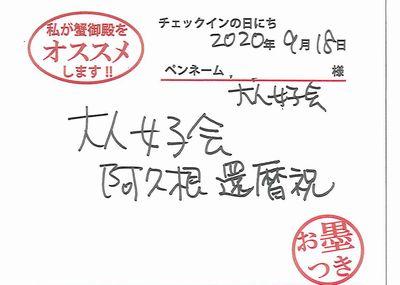 私が蟹御殿を
オススメ
します!!
チェックインの日にち
2020年9月18日
ペンネーム 様
大人女子会
大人女子会
阿久根 還暦祝
お墨
つき